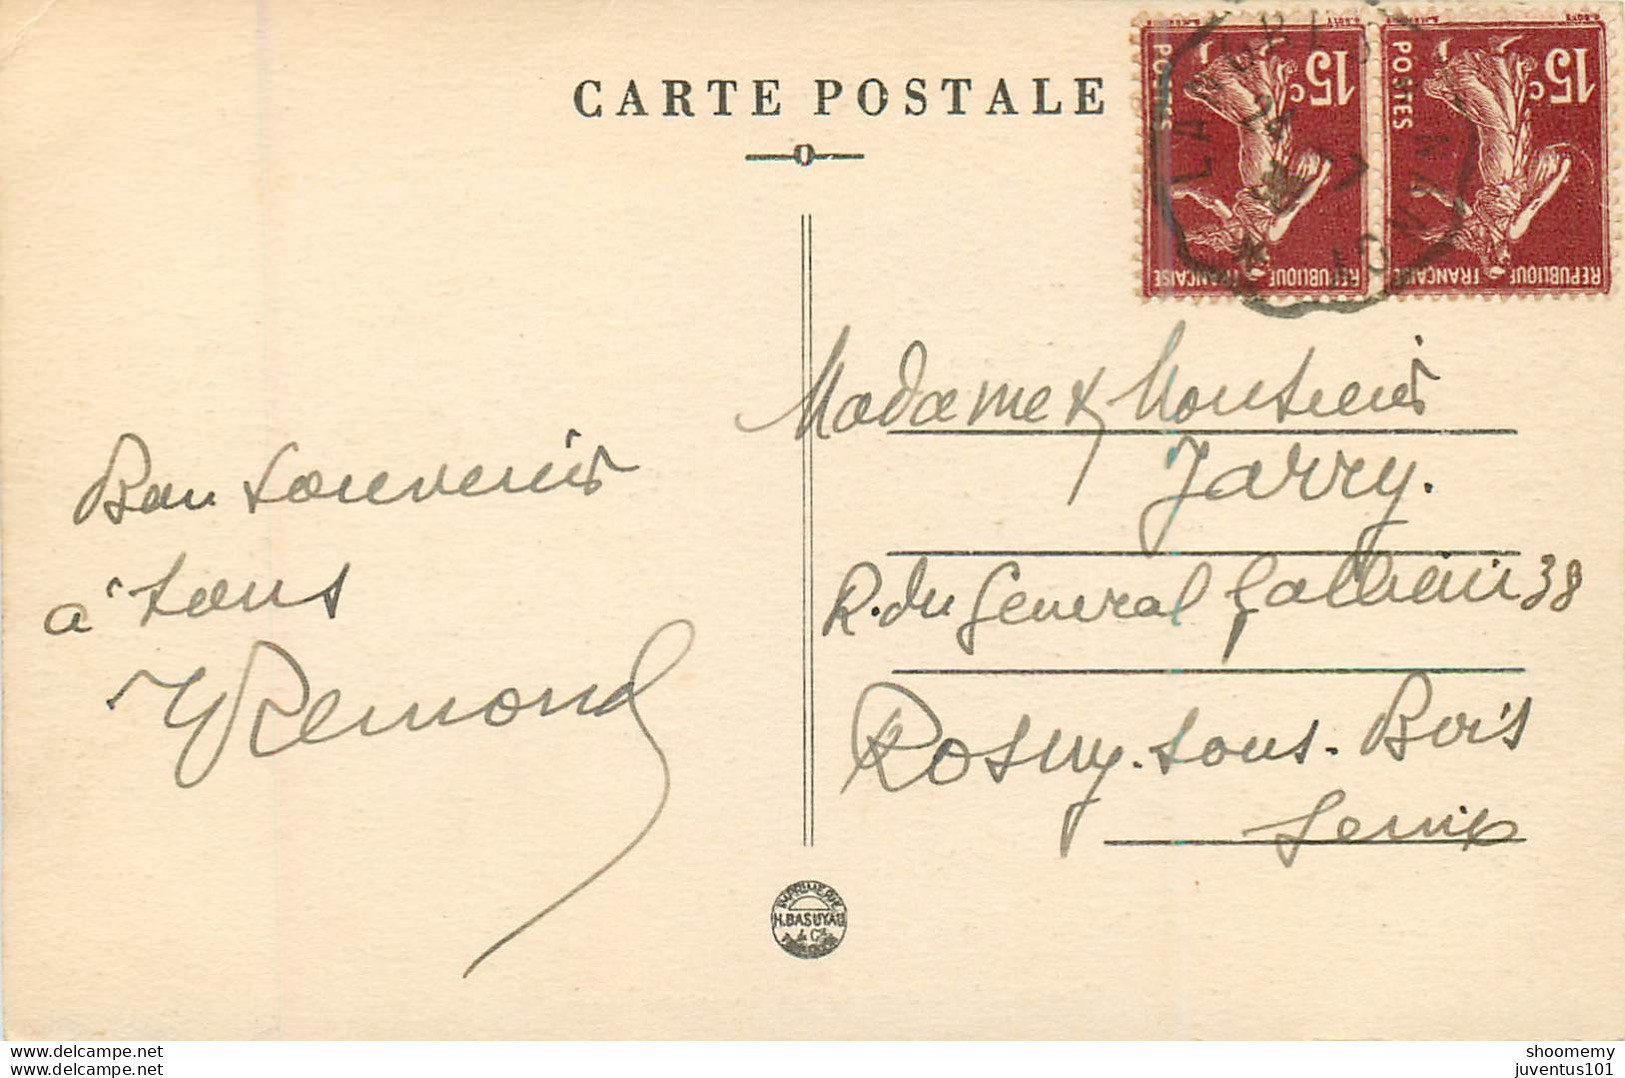 CARTE POSTALE
15c
POSTES
REPUBLIQUE FRANÇAISE
15c
POSTES
REPUBLIQUE FRANÇAISE
LYON
24
Bon souvenir
à tous
Remond
Madame & Monsieur
Jarry.
R. du General Gallieni 38
Rosny-sous-Bois
Seine
IMPRIMERIE
H. BASUYAU
& Cie
delcampe.net
delcampe.net
shoomemy
juventus101